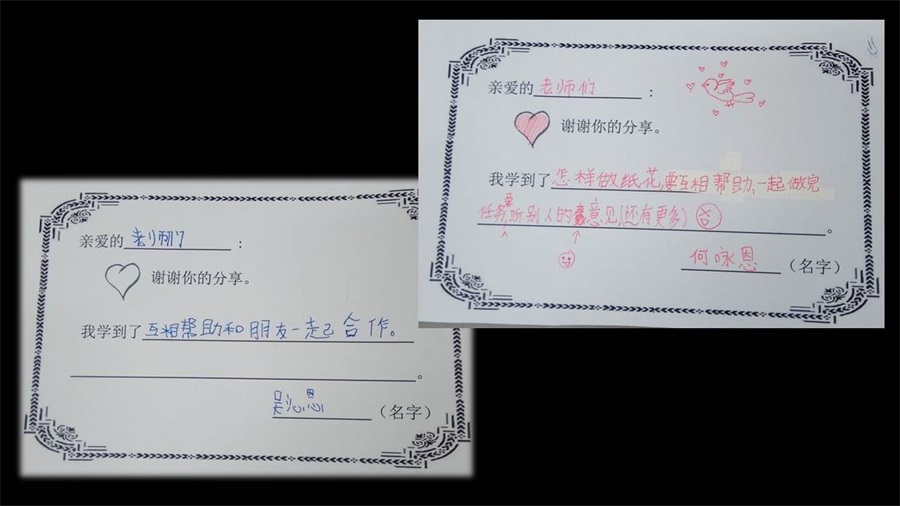 亲爱的 老师们 :
谢谢你的分享。
我学到了 互相帮助和朋友一起合作。
。
吴沁恩 (名字)
亲爱的 老师们 :
谢谢你的分享。
我学到了 怎样做纸花,要互相帮助,一起做完
任务,要听别人的意见,(还有更多) 。
何咏恩 (名字)